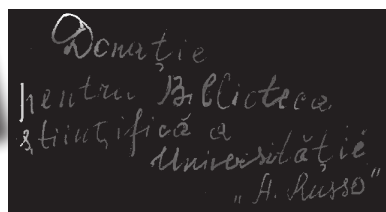 Donație
pentru Biblioteca
științifică a
Universităție
„A. Russo”